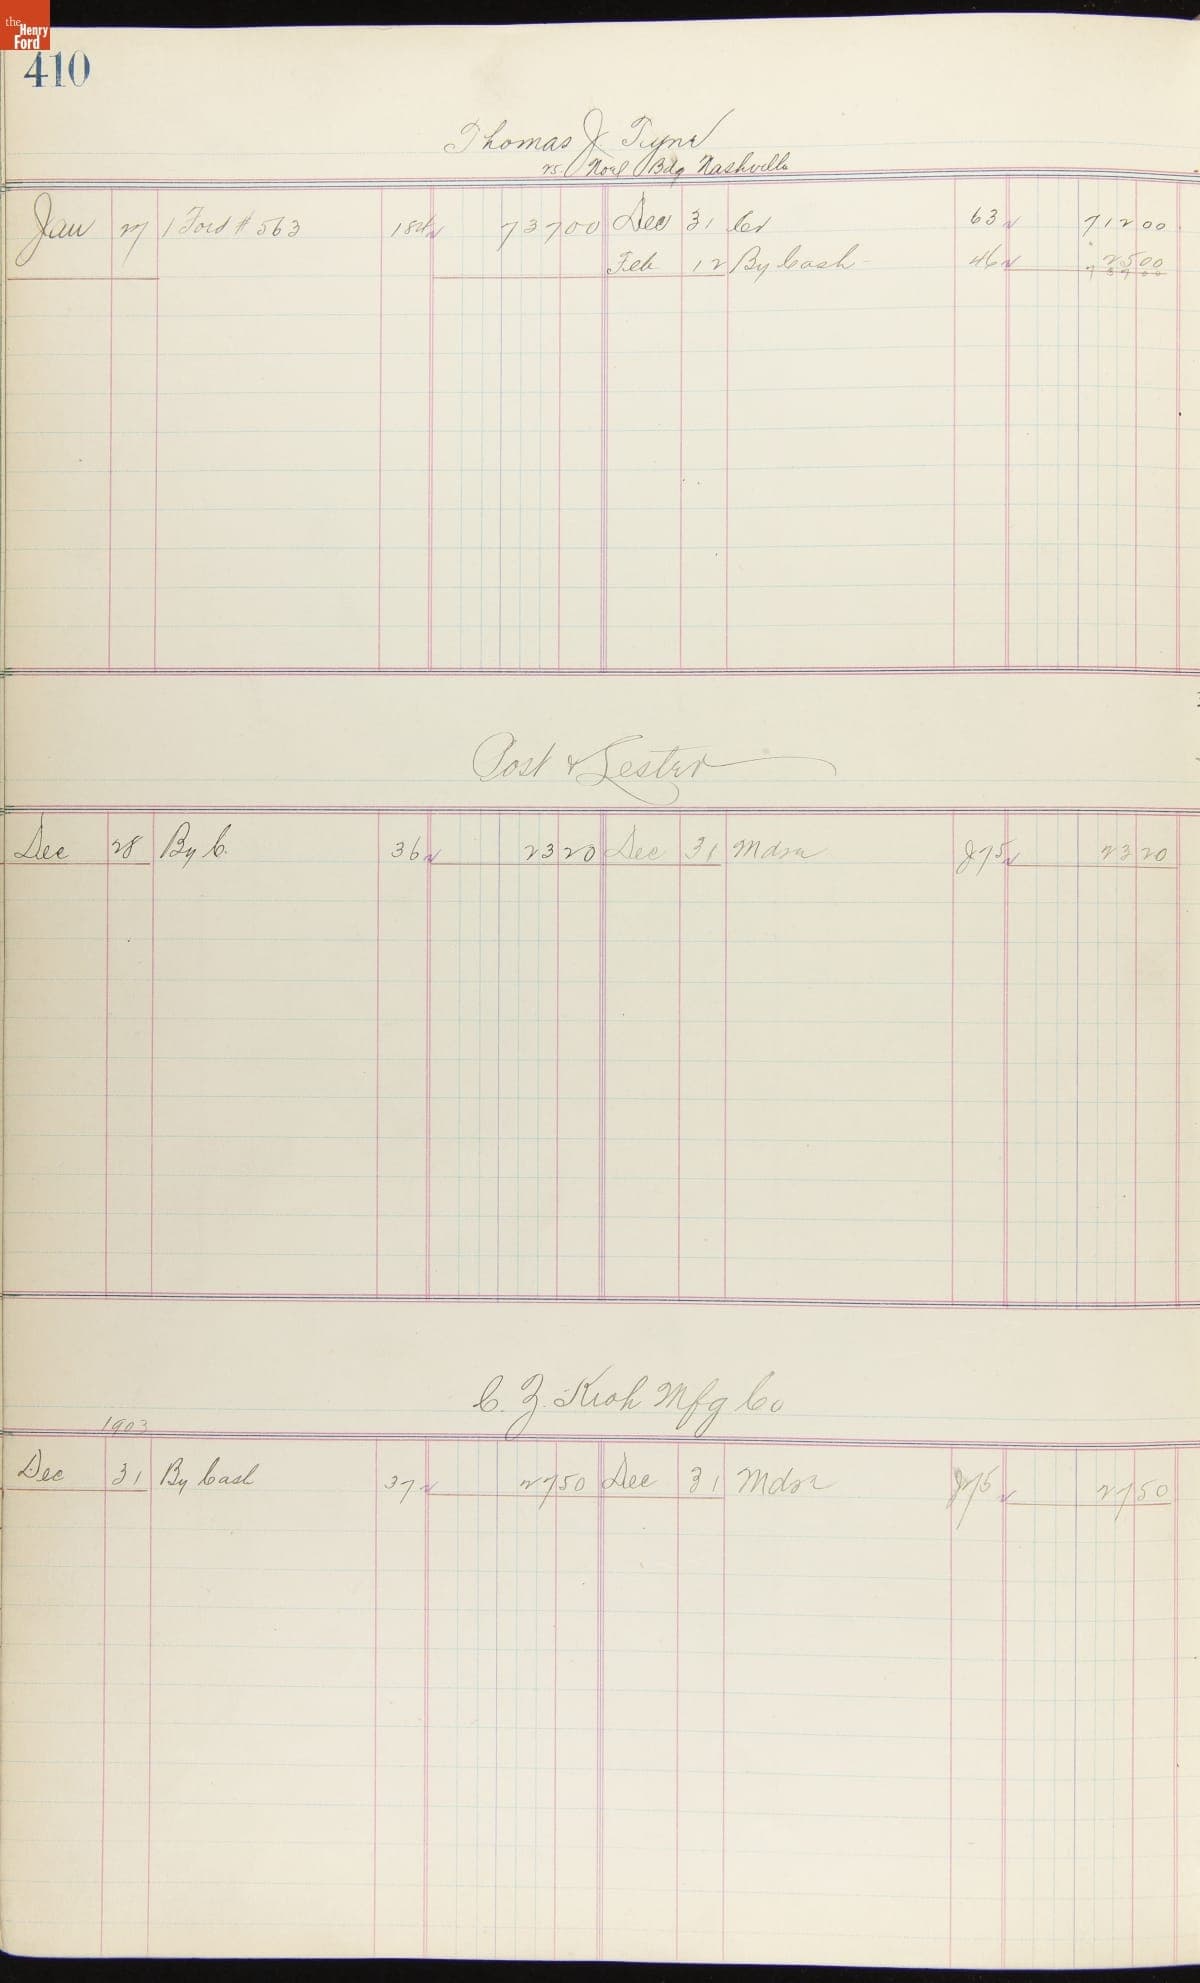 the Henry Ford
410
Thomas J Tyne
25 Noel Bdg Nashville
Jan 27 1 Ford # 563 18 737 00 Dec 31 Cr 63 712 00
Feb 12 By Cash 46 25 00
737 00
Post & Lester
Dec 28 By C. 36 23 20 Dec 31 Mdse J75 23 20
C. Z. Kroh Mfg Co
1903
Dec 31 By Cash 37 27 50 Dec 31 Mdse J75 27 50